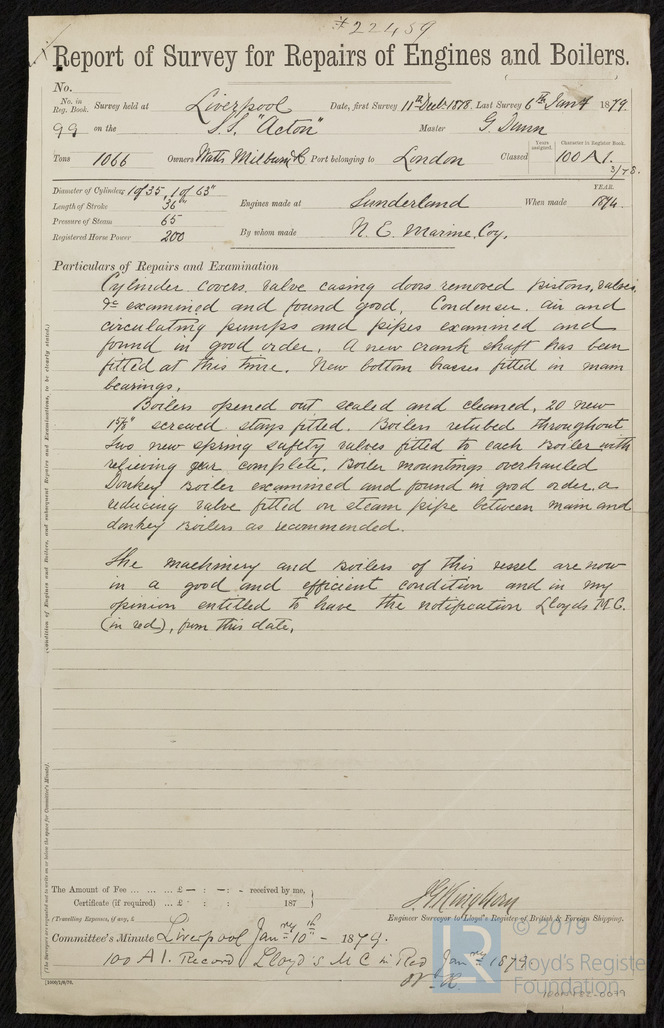 * 22459
Report of Survey for Repairs of Engines and Boilers.
No.
No. in Reg. Book. Survey held at Liverpool Date, first Survey 11th Decbr 1878. Last Survey 6th Jany 1879.
99 on the S.S. "Acton" Master G. Dunn
Tons 1066 Owners Watts Milburn & Co Port belonging to London Classed Years assigned. Character in Register Book. 100 A 1. 3/78.
Diameter of Cylinders 1 of 35, 1 of 63"
Length of Stroke 36"
Pressure of Steam 65
Registered Horse Power 200
Engines made at Sunderland When made YEAR. 1874.
By whom made N. E. Marine Coy.
Particulars of Repairs and Examination
Cylinder covers, valve casing doors removed pistons, valves,
&c examined and found good, Condenser, air and
circulating pumps and pipes examined and
found in good order. A new crank shaft has been
fitted at this time. New bottom brasses fitted in main
bearings.
Boilers opened out scaled and cleaned, 20 new
screwed stays fitted. Boilers retubed throughout
two new spring safety valves fitted to each Boiler with
relieving gear complete. Boiler mountings overhauled
Donkey Boiler examined and found in good order. a
reducing valve fitted on steam pipe between main and
donkey Boilers as recommended.
The machinery and Boilers of this vessel are now
in a good and efficient condition and in my
opinion entitled to have the notification Lloyds M.C.
(in red), from this date.
(Condition of Engines and Boilers, and subsequent Repairs and Examinations, to be clearly stated.)
(The Surveyors are requested not to write on or below the space for Committee's Minute).
The Amount of Fee ... ... ... £ — : — : - received by me,
Certificate (if required) ... £ : : 187
(Travelling Expenses, if any, £
J G Kinghorn
Engineer Surveyor to Lloyd's Register of British & Foreign Shipping.
Committee's Minute Liverpool Jany 10th - 1879.
100 A 1. Record Lloyd's M C in Red Jany 1879
[1000/1/8/78.
LR
© 2019
Lloyd's Register
Foundation